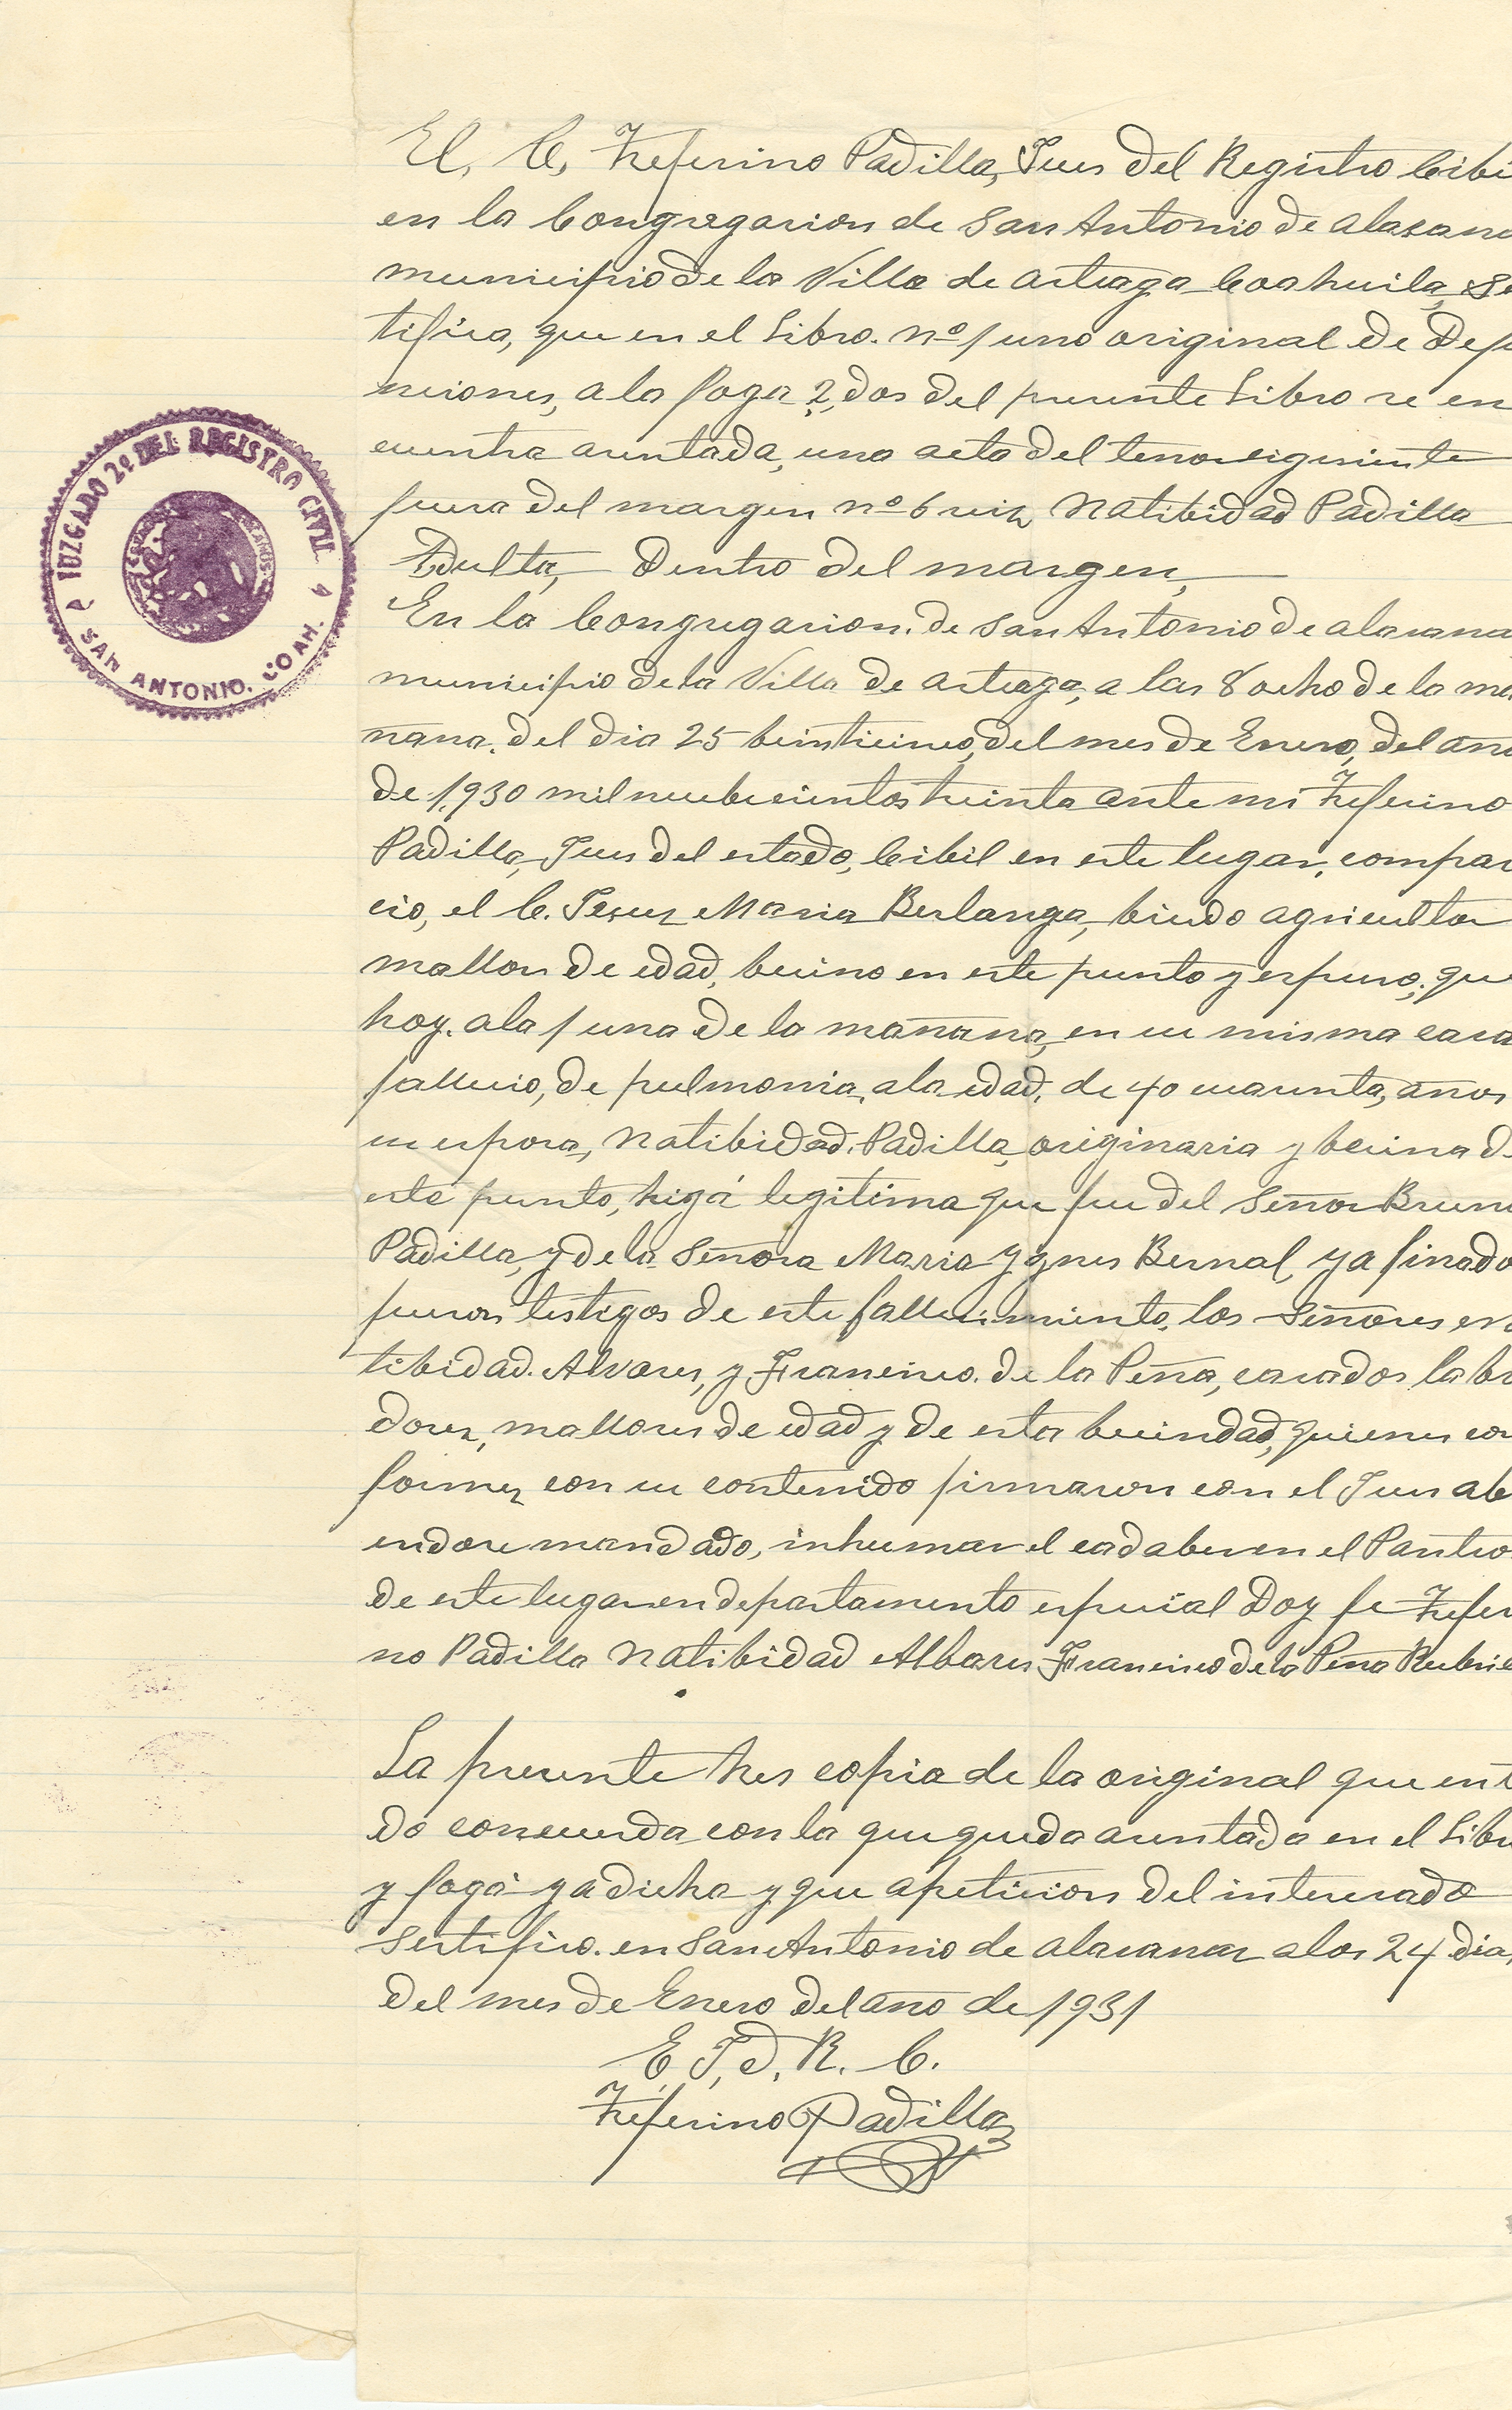 JUZGADO 2º DEL REGISTRO CIVIL
SAN ANTONIO. COAH.
El, C, Zeferino Padilla, Jues del Registro Cibi
en la Congregasion de San Antonio de alasana
municipio de la Villa de arteaga Coahuila, Se
tifica, que en el Libro. nº 1 uno original de Defu
nciones, a la foga 2, dos del presente Libro se en
cuentra asentada, una acta del tenor sigeriente
fuera del margen nº 6 seis, Natibidad Padilla
Adulta, Dentro del margen,
En la Congregasion. de San Antonio de alasana
municipio de la Villa de arteaga, a las 8 ocho de la ma
ñana. del dia 25 beinticinco, del mes de Enero, del año
de 1,930 mil neubecientos treinta ante mi Zeferino
Padilla, Jues del estado, Cibil en este lugar, compar
cio, el C. Jesus Maria Berlanga, biudo agricultor
mallor de edad, becino en este punto y espuso, que
hoy. a la 1 una de la mañana, en su misma casa
fallecio, de pulmonia, a la edad, de 40 cuarenta, años
su esposa, Natibidad. Padilla, originaria y becina d
este punto, higá legitima que fue del Señor Brun
Padilla, y de la Señora Maria Ygnes Bernal, ya finado
fueron testigos de este fallecimiento, los Señores en
tibidad. Alvares, y Francisco. de la Peña, casados labr
dores, mallores de edad y de esta becindad, quienes con
formes con su contenido firmaron con el Jues abi
endose mandado, inhumar el cadaber en el Panteo
de este lugar en departamento especial Doy fe Zeferi
no Padilla Natibidad Albares Francisco de la Peña Rubric
La presente hes copia de la original que ent
do concuerda con la que queda asentada en el Libr
y fogá ya dicha y que apeticion del interesado
Sertifico. en San Antonio de alasanas a los 24 dia,
del mes de Enero del año de 1931
E, J, d, R. C.
Zeferino Padilla